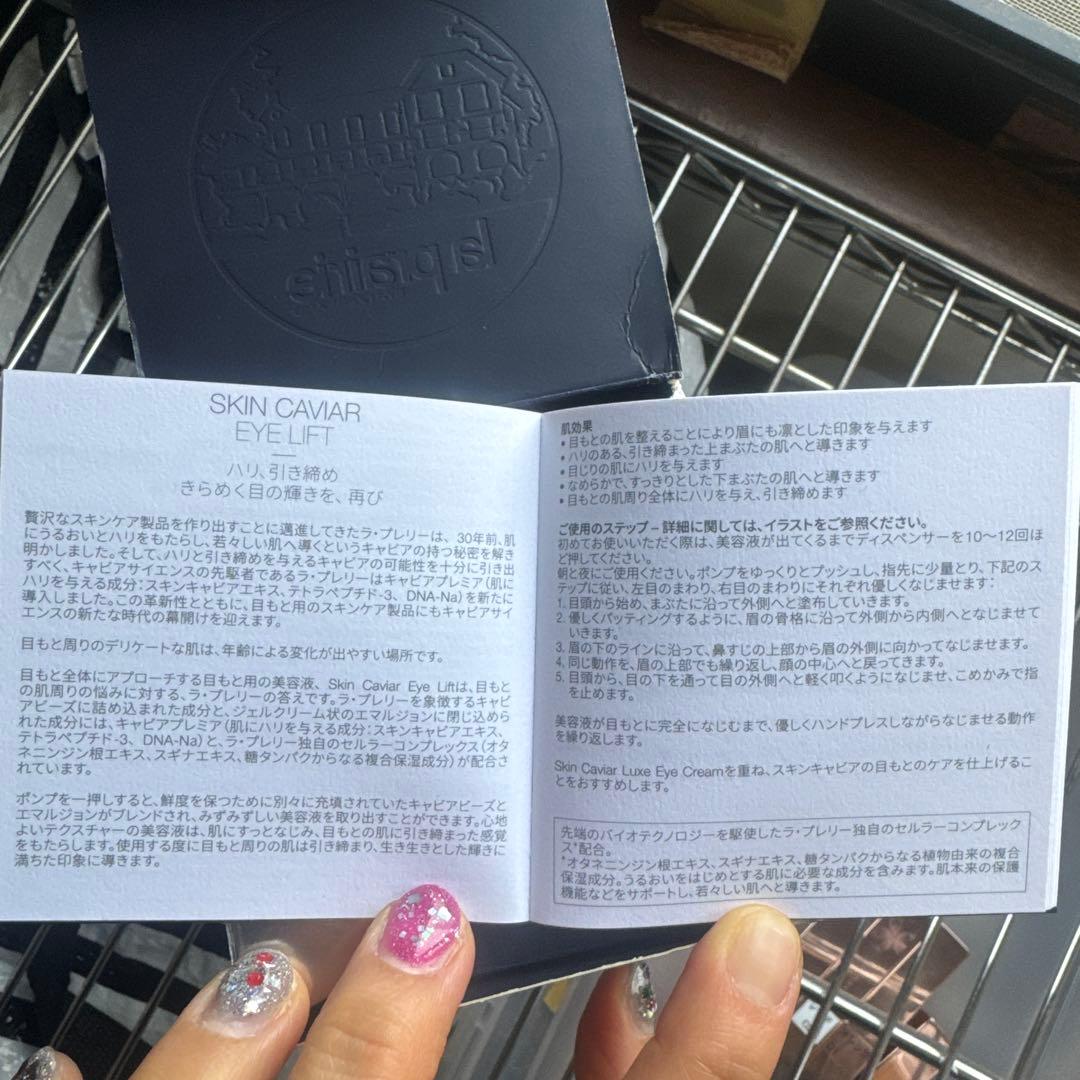 la prairie
SKIN CAVIAR
EYE LIFT
ハリ、引き締め
きらめく目の輝きを、再び
贅沢なスキンケア製品を作り出すことに邁進してきたラ・プレリーは、30年前、肌
にうるおいとハリをもたらし、若々しい肌へ導くというキャビアの持つ秘密を解き
明かしました。そして、ハリと引き締めを与えるキャビアの可能性を十分に引き出
すべく、キャビアサイエンスの先駆者であるラ・プレリーはキャビアプレミア（肌に
ハリを与える成分：スキンキャビアエキス、テトラペプチド-3、DNA-Na）を新たに
導入しました。この革新性とともに、目もと用のスキンケア製品にもキャビアサイ
エンスの新たな時代の幕開けを迎えます。
目もと周りのデリケートな肌は、年齢による変化が出やすい場所です。
目もと全体にアプローチする目もと用の美容液、Skin Caviar Eye Liftは、目もと
の肌周りの悩みに対する、ラ・プレリーの答えです。ラ・プレリーを象徴するキャビ
アビーズに詰め込まれた成分と、ジェルクリーム状のエマルジョンに閉じ込めら
れた成分には、キャビアプレミア（肌にハリを与える成分：スキンキャビアエキス、
テトラペプチド-3、DNA-Na）と、ラ・プレリー独自のセルラーコンプレックス（オタ
ネニンジン根エキス、スギナエキス、糖タンパクからなる複合保湿成分）が配合さ
れています。
ポンプを一押しすると、鮮度を保つために別々に充填されていたキャビアビーズと
エマルジョンがブレンドされ、みずみずしい美容液を取り出すことができます。心地
よいテクスチャーの美容液は、肌にすっとなじみ、目もとの肌に引き締まった感覚
をもたらします。使用する度に目もと周りの肌は引き締まり、生き生きとした輝きに
満ちた印象に導きます。
肌効果
• 目もとの肌を整えることにより眉にも凛とした印象を与えます
• ハリのある、引き締まった上まぶたの肌へと導きます
• 目じりの肌にハリを与えます
• なめらかで、すっきりとした下まぶたの肌へと導きます
• 目もとの肌周り全体にハリを与え、引き締めます
ご使用のステップ – 詳細に関しては、イラストをご参照ください。
初めてお使いいただく際は、美容液が出てくるまでディスペンサーを10〜12回ほ
ど押してください。
朝と夜にご使用ください。ポンプをゆっくりとプッシュし、指先に少量とり、下記のス
テップに従い、左目のまわり、右目のまわりにそれぞれ優しくなじませます：
1. 目頭から始め、まぶたに沿って外側へと塗布していきます。
2. 優しくパッティングするように、眉の骨格に沿って外側から内側へとなじませて
いきます。
3. 眉の下のラインに沿って、鼻すじの上部から眉の外側に向かってなじませます。
4. 同じ動作を、眉の上部でも繰り返し、顔の中心へと戻ってきます。
5. 目頭から、目の下を通って目の外側へと軽く叩くようになじませ、こめかみで指
を止めます。
美容液が目もとに完全になじむまで、優しくハンドプレスしながらなじませる動作
を繰り返します。
Skin Caviar Luxe Eye Creamを重ね、スキンキャビアの目もとのケアを仕上げるこ
とをおすすめします。
先端のバイオテクノロジーを駆使したラ・プレリー独自のセルラーコンプレック
ス*配合。
*オタネニンジン根エキス、スギナエキス、糖タンパクからなる植物由来の複合
保湿成分。うるおいをはじめとする肌に必要な成分を含みます。肌本来の保護
機能などをサポートし、若々しい肌へと導きます。